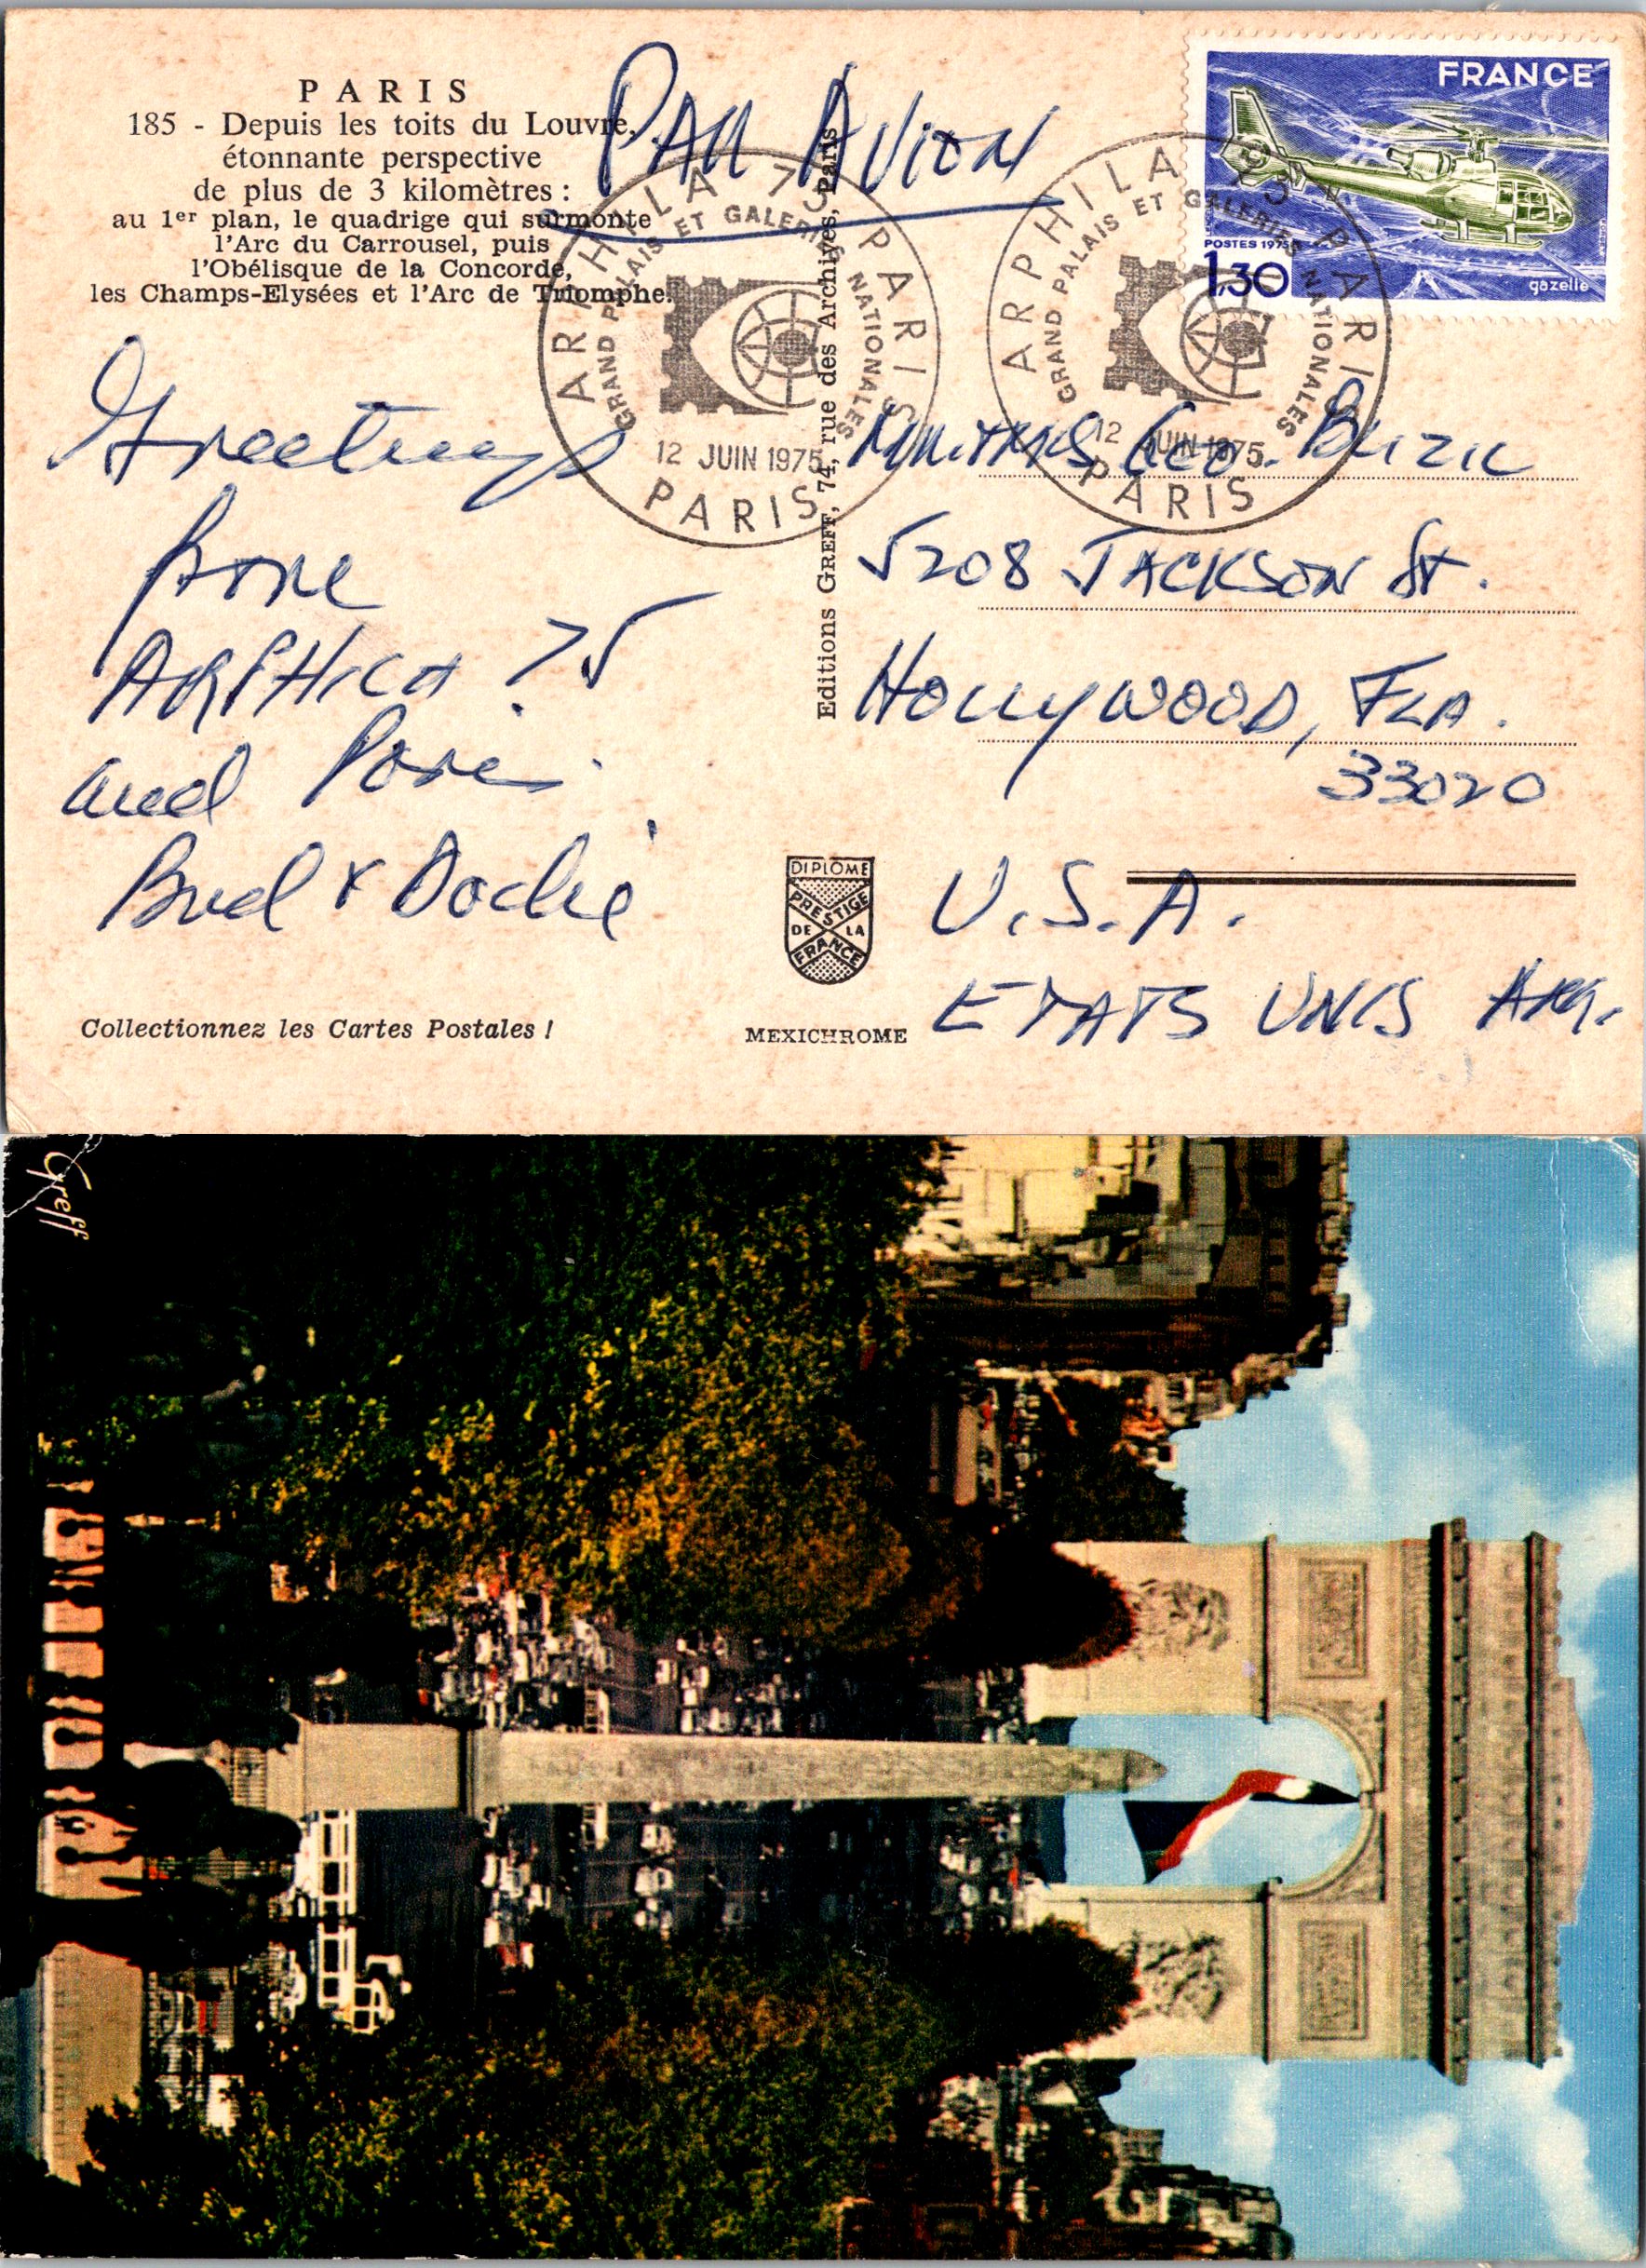 PARIS
185 - Depuis les toits du Louvre,
étonnante perspective
de plus de 3 kilomètres :
au 1er plan, le quadrige qui surmonte
l'Arc du Carrousel, puis
l'Obélisque de la Concorde,
les Champs-Elysées et l'Arc de Triomphe.
PAR AVION
FRANCE
POSTES 1975
1,30
gazelle
ARPHILA 75 PARIS
GRAND PALAIS ET GALERIES NATIONALES
12 JUIN 1975
PARIS
ARPHILA 75 PARIS
GRAND PALAIS ET GALERIES NATIONALES
12 JUIN 1975
PARIS
Greetings
from
ARPHILA 75
and Paris.
Bud &
Editions GREFF, 74, rue des Archives, Paris
Geo.
5208 JACKSON St.
Hollywood, FLA.
33020
U.S.A.
ETATS UNIS
DIPLOME
PRESTIGE
DE LA
FRANCE
Collectionnez les Cartes Postales !
MEXICHROME
Greff